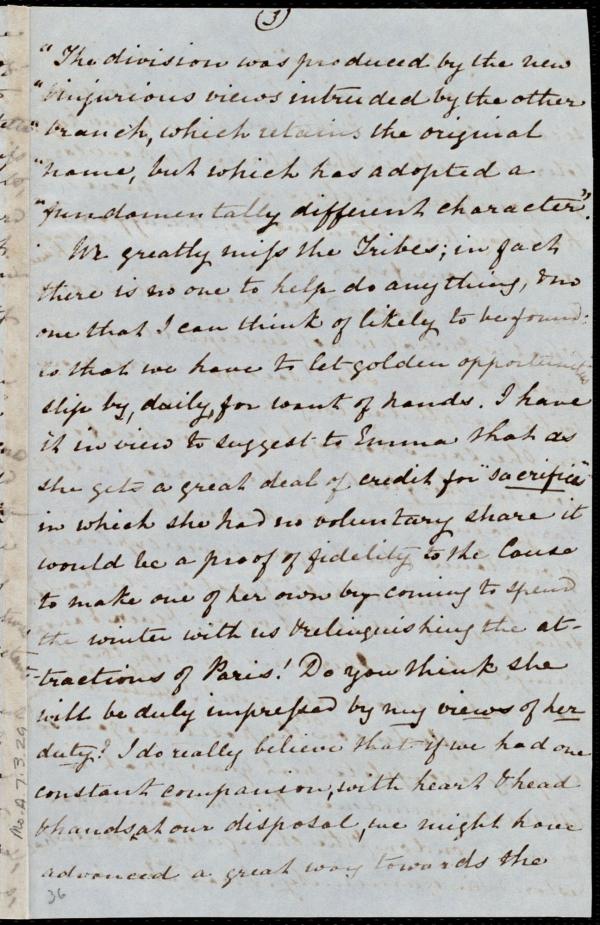 (3)
"The division was produced by the new
"& injurious views intruded by the other
"branch, which retains the original
"name, but which has adopted a
"fundamentally different character".
We greatly miss the Tribes; in fact
there is no one to help do anything, & no
one that I can think of likely to be found:
so that we have to let golden opportunities
slip by, daily, for want of hands. I have
it in view to suggest to Emma that as
she gets a great deal of credit for "sacrifice"
in which she had no voluntary share it
would be a proof of fidelity to the Cause
to make one of her own by coming to spend
the winter with us & relinquishing the at-
tractions of Paris! Do you think she
will be duly impressed by my views of her
duty? I do really believe that if we had one
constant companion, with heart & head
& hands, at our disposal, we might have
advanced a great way towards the
36